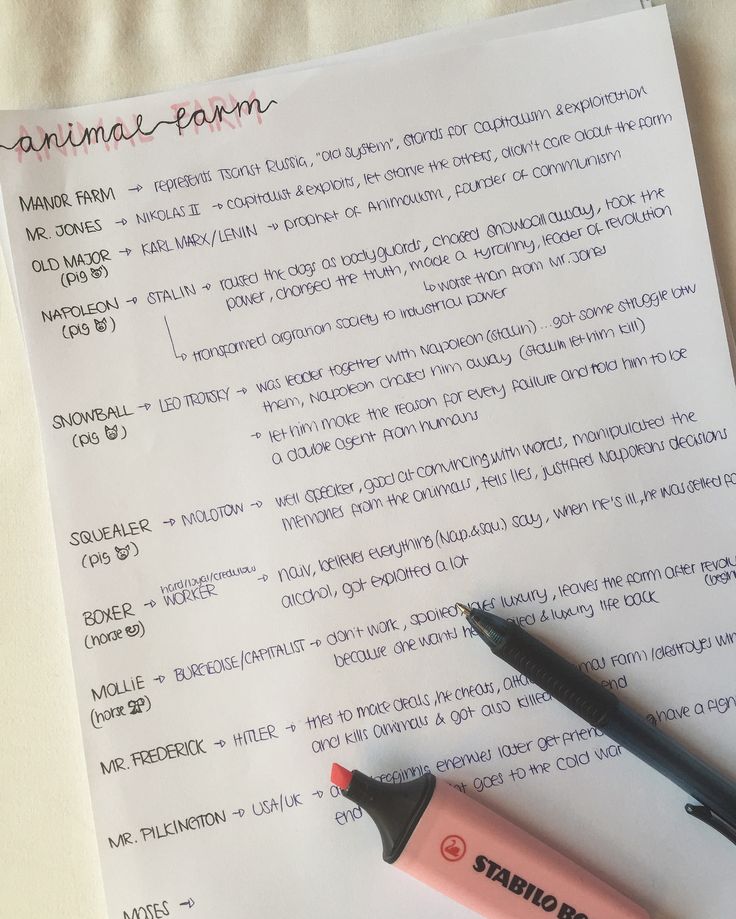 ANIMAL FARM
animal farm
MANOR FARM → represents Tsarist Russia, "old system", stands for capitalism & exploitation
MR. JONES → NIKOLAS II → capitalist & exploits, let starve the others, didn't care about the farm
OLD MAJOR → KARL MARX/LENIN → prophet of Animalism, founder of communism
(pig)
NAPOLEON → STALIN → raised the dogs as bodyguards, chased snowball away, took the
(pig) power, changed the truth, made a tyranny, leader of revolution
↳ worse than from Mr. Jones
↳ transformed agration society to industrial power
SNOWBALL → LEO TROTSKY → was leader together with Napoleon (Stalin)...got some struggle btw
(pig) them, Napoleon chased him away (Stalin let him kill)
→ let him make the reason for every failure and told him to be
a double agent from humans
SQUEALER → MOLOTOW → well speaker, good at convincing with words, manipulated the
(pig) memories from the animals, tells lies, justified Napoleons decisions
hard/loyal/credulous
BOXER → WORKER → naiv, believes everything (Nap.&Squ.) say, when he's ill, he was selled for
(horse) alcohol, got exploited a lot
MOLLIE → BURGEOISE/CAPITALIST → don't work, spoiled, luxury, leaves the farm after
(horse) because she wants & luxury life back
MR. FREDERICK → HITLER → tries to make deals, he cheats, Farm/destroyes
and kills animals & got also killed end
MR. PILKINGTON → USA/UK → enemies later get have a
end goes to the cold
MOSES →
STABILO